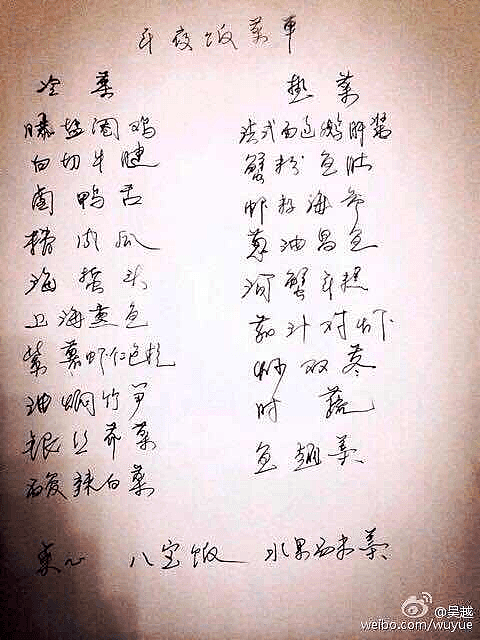 年夜饭菜单
冷菜
膝盐焗鸡
白切牛腱
卤鸭舌
糟肉瓜
海蜇头
上海熏鱼
紫薯虾仁色拉
油焖竹笋
银丝芥菜
酸辣白菜
热菜
法式面包鹅肝酱
蟹粉鱼肚
虾籽海参
葱油昌鱼
河蟹年糕
茄汁对虾
炒双冬
时蔬
鱼翅羹
点心 八宝饭 水果西米羹
@吴越
weibo.com/wuyue